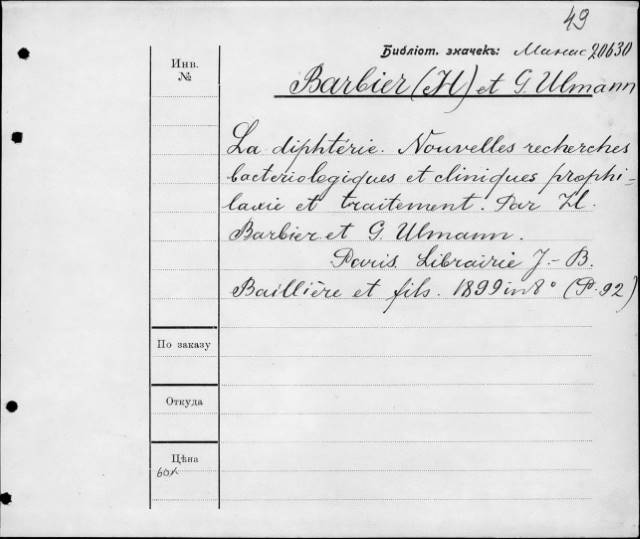 49
Библіот. значекъ: Манас 20630
Инв.
№
Barbier (H) et G. Ulmann
La diphtérie. Nouvelles recherches
bacteriologiques et cliniques prophi-
laxie et traitement. Par H.
Barbier et G. Ulmann.
Paris. Librairie J.-B.
Baillière et fils. 1899 in 8° (P. 92)
По заказу
Откуда
Цѣна
60к